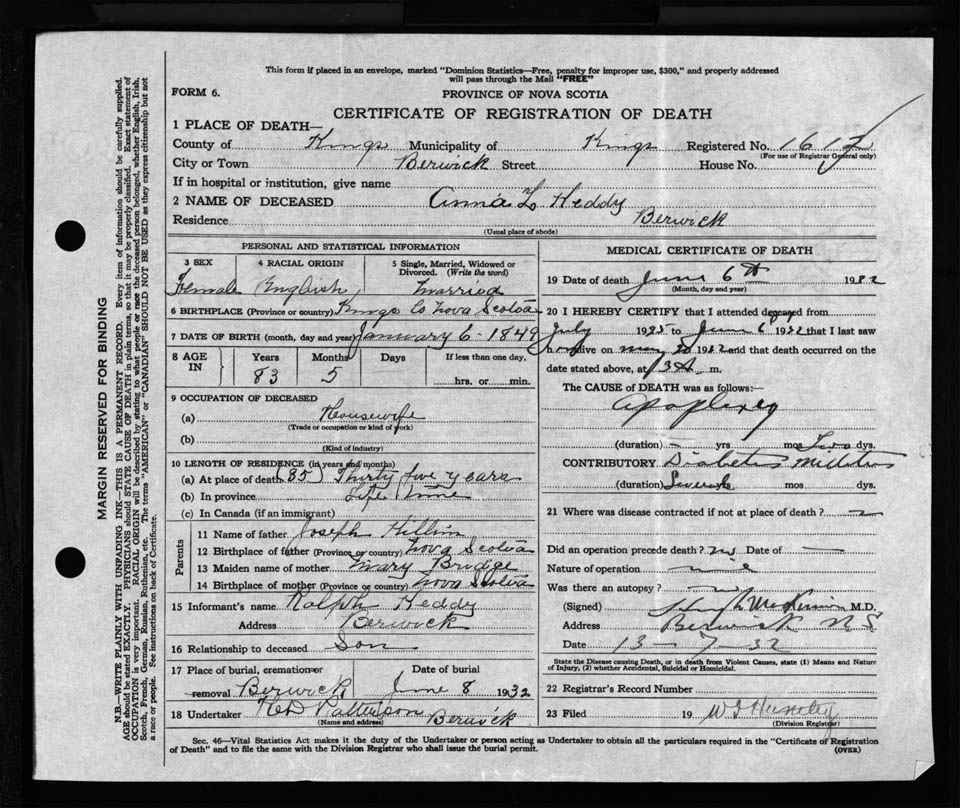 This form if placed in an envelope, marked "Dominion Statistics—Free, penalty for improper use, $300," and properly addressed
will pass through the Mail "FREE"
FORM 6.
PROVINCE OF NOVA SCOTIA
CERTIFICATE OF REGISTRATION OF DEATH
1 PLACE OF DEATH—
County of Kings Municipality of Kings Registered No. 1612
(For use of Registrar General only)
City or Town Berwick Street House No.
If in hospital or institution, give name
2 NAME OF DECEASED Anna L Heddy
Residence Berwick
(Usual place of abode)
PERSONAL AND STATISTICAL INFORMATION
3 SEX 4 RACIAL ORIGIN 5 Single, Married, Widowed or
Divorced. (Write the word)
Female English married
6 BIRTHPLACE (Province or country) Kings Co Nova Scotia
7 DATE OF BIRTH (month, day and year) January 6 - 1849
8 AGE IN Years Months Days If less than one day,
83 5 hrs. or min.
9 OCCUPATION OF DECEASED
(a) Housewife
(Trade or occupation or kind of work)
(b)
(Kind of industry)
10 LENGTH OF RESIDENCE (in years and months)
(a) At place of death (35) Thirty five years
(b) In province Life time
(c) In Canada (if an immigrant)
Parents
11 Name of father Joseph
12 Birthplace of father (Province or country) Nova Scotia
13 Maiden name of mother Mary Bridge
14 Birthplace of mother (Province or country) Nova Scotia
15 Informant's name Ralph Heddy
Address Berwick
16 Relationship to deceased Son
17 Place of burial, cremation or Date of burial
removal Berwick June 8 1932
18 Undertaker Patterson Berwick
(Name and address)
MEDICAL CERTIFICATE OF DEATH
19 Date of death June 6th 1932
(Month, day and year)
20 I HEREBY CERTIFY that I attended deceased from
July 1925 to June 6 1932 that I last saw
her alive on May 1932 and that death occurred on the
date stated above, at m.
The CAUSE of DEATH was as follows:
Apoplexy
(duration) — yrs mos Two dys.
CONTRIBUTORY Diabetes Mellitus
(duration) Several yrs mos dys.
21 Where was disease contracted if not at place of death? —
Did an operation precede death? no Date of —
Nature of operation
Was there an autopsy?
(Signed) M.D.
Address Berwick N.S.
Date 13-7-32
State the Disease causing Death, or in death from Violent Causes, state (1) Means and Nature
of Injury, (2) whether Accidental, Suicidal or Homicidal.
22 Registrar's Record Number
23 Filed 19
(Division Registrar)
Sec. 46—Vital Statistics Act makes it the duty of the Undertaker or person acting as Undertaker to obtain all the particulars required in the "Certificate of Registration
of Death" and to file the same with the Division Registrar who shall issue the burial permit. (OVER)
MARGIN RESERVED FOR BINDING
N.B.—WRITE PLAINLY WITH UNFADING INK—THIS IS A PERMANENT RECORD. Every item of information should be carefully supplied.
AGE should be stated EXACTLY. PHYSICIANS should STATE CAUSE OF DEATH in plain terms, so that it may be properly classified. Exact statement of
OCCUPATION is very important. RACIAL ORIGIN will be described by stating to what people or race the deceased person belonged, whether English, Irish,
Scotch, French, German, Russian, Ruthenian, etc. The terms "AMERICAN" or "CANADIAN" SHOULD NOT BE USED as they express citizenship but not
a race or people. See instructions on back of Certificate.